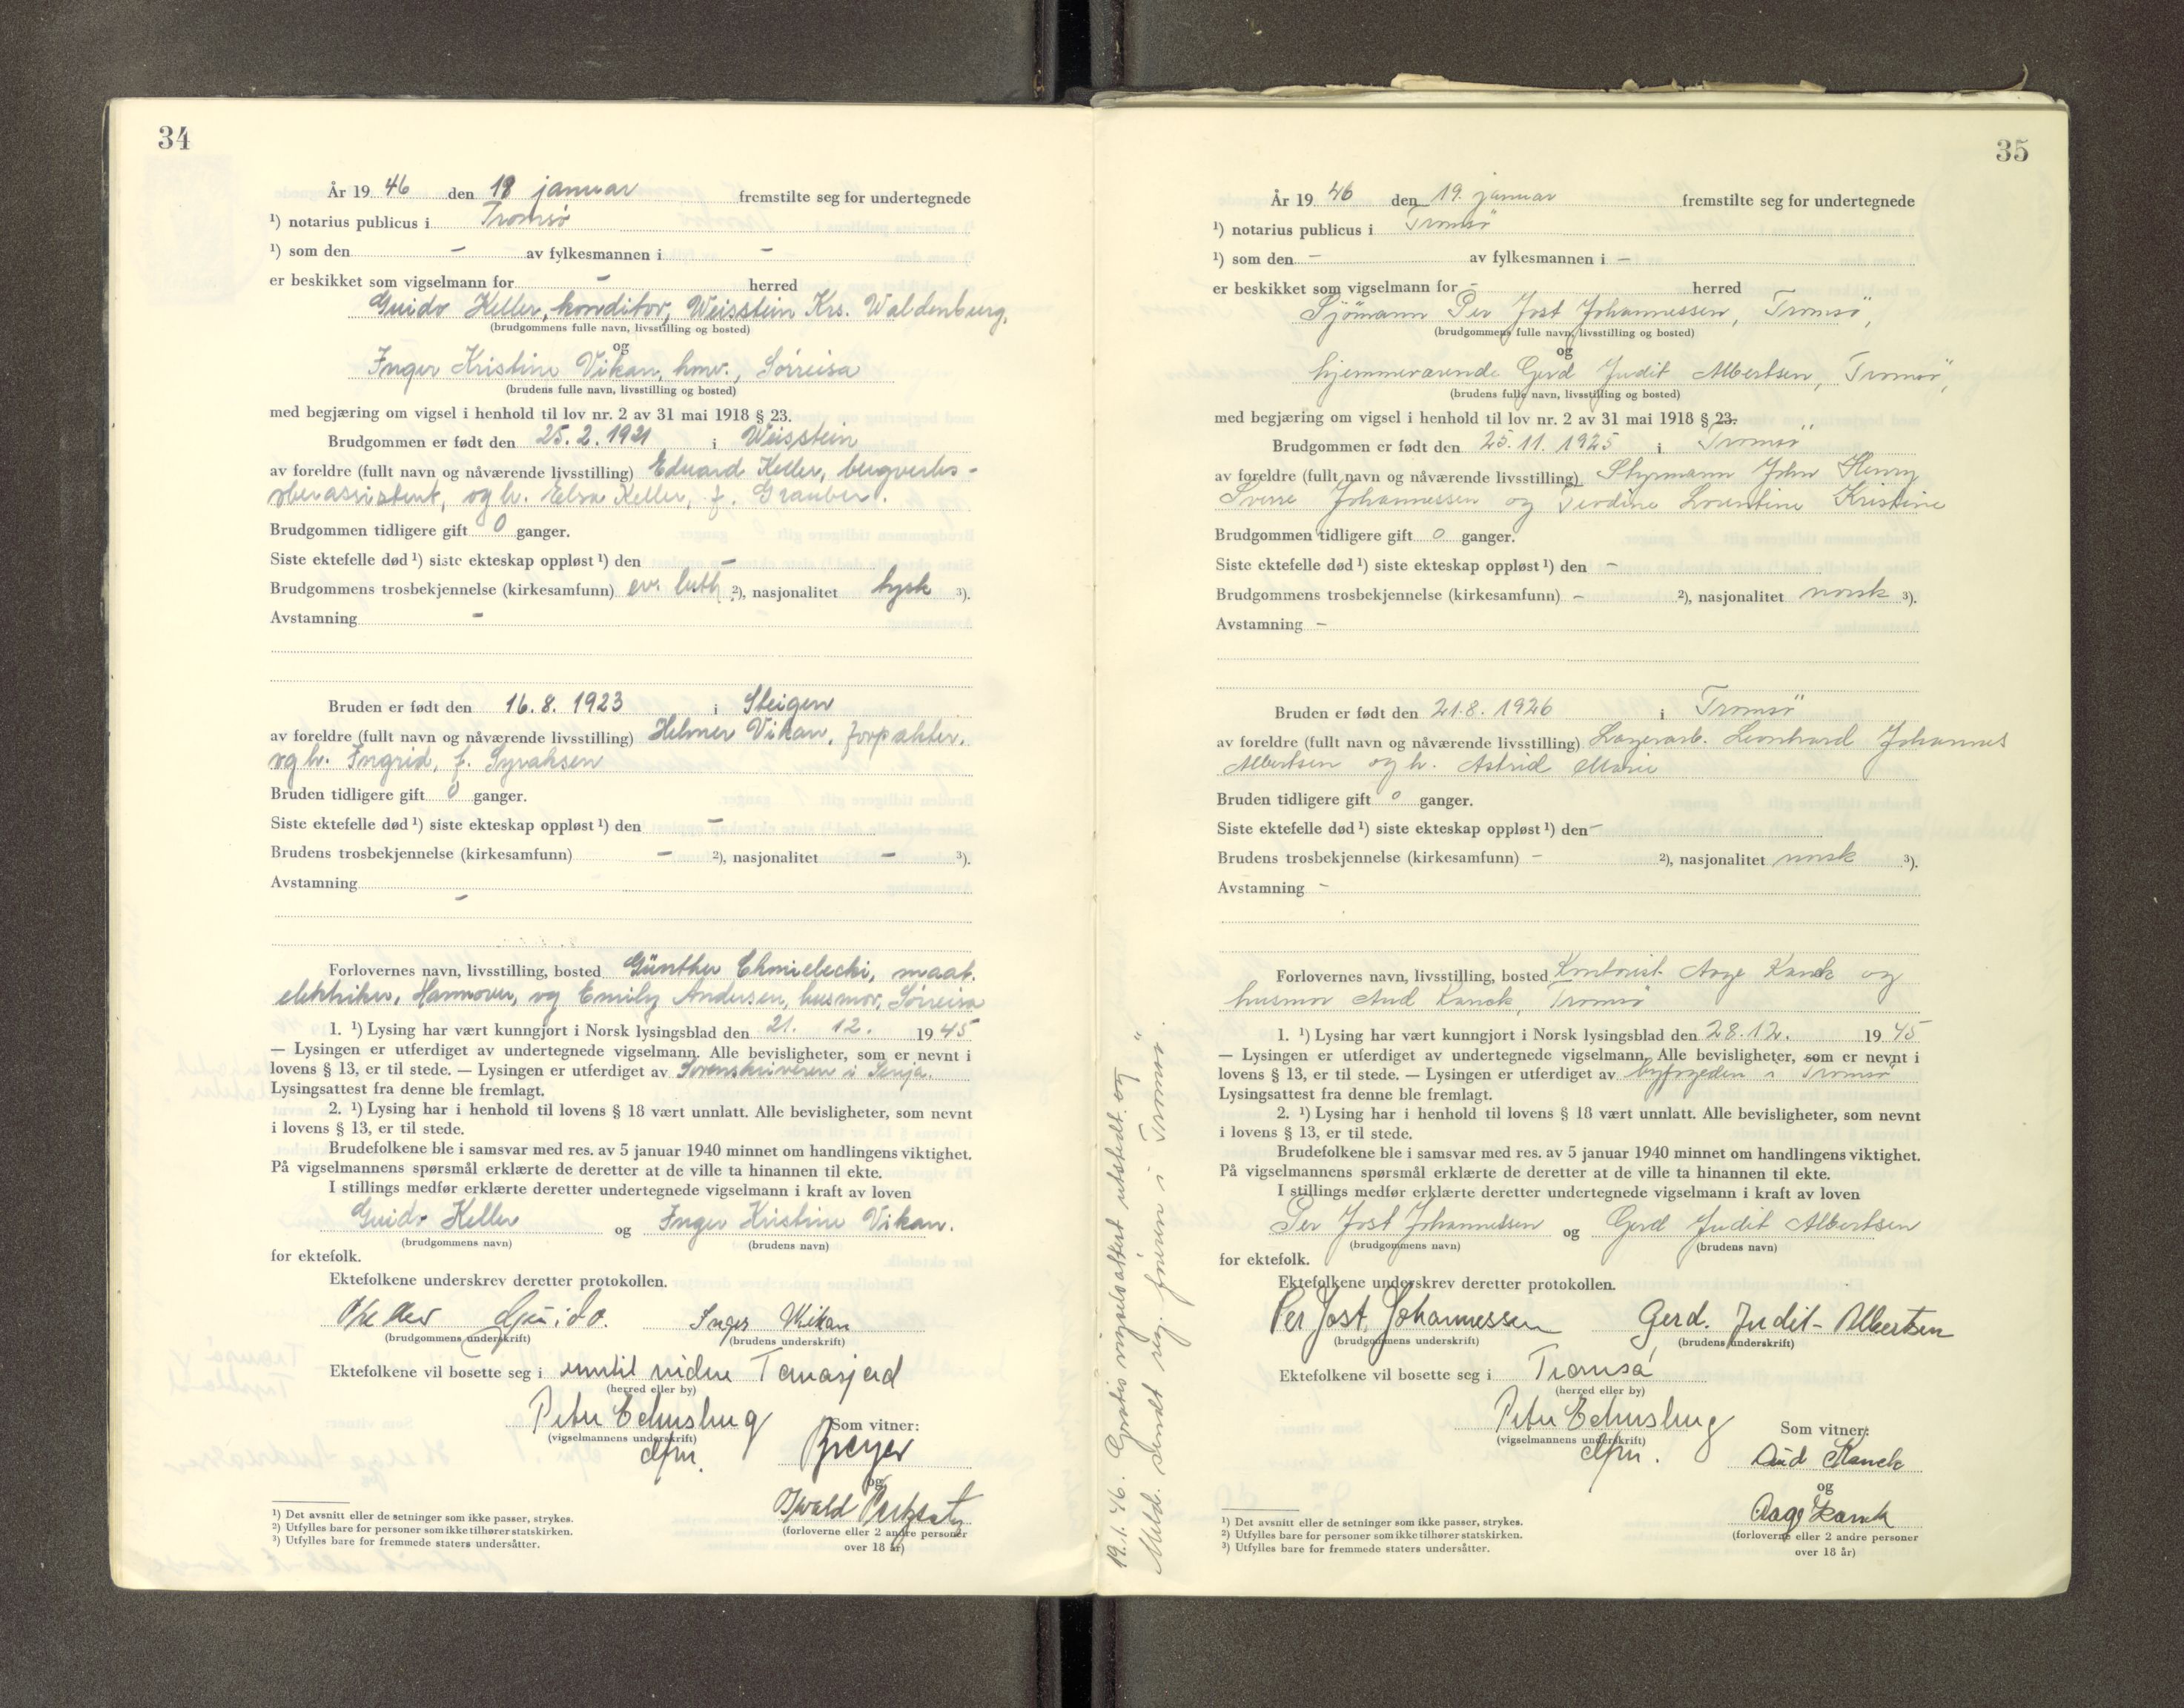 34
År 19 46 den 18 januar fremstilte seg for undertegnede
¹) notarius publicus i Tromsø
¹) som den - av fylkesmannen i -
er beskikket som vigselmann for - herred
Guido Keller, konditor, Weisstein Krs. Waldenburg,
(brudgommens fulle navn, livsstilling og bosted)
og
Inger Kristine Vikan, hmv., Sörreisa
(brudens fulle navn, livsstilling og bosted)
med begjæring om vigsel i henhold til lov nr. 2 av 31 mai 1918 § 23.
Brudgommen er født den 25. 2. 1921 i Weisstein
av foreldre (fullt navn og nåværende livsstilling) Eduard Keller, bergverks-
oberassistent, og h. Elsa Keller, f. Grauber.
Brudgommen tidligere gift 0 ganger.
Siste ektefelle død ¹) siste ekteskap oppløst ¹) den -
Brudgommens trosbekjennelse (kirkesamfunn) ev. luth ²), nasjonalitet tysk ³).
Avstamning -
Bruden er født den 16. 8. 1923 i Steigen
av foreldre (fullt navn og nåværende livsstilling) Helmer Vikan, forpakter,
og h. Ingrid, f. Syraksen
Bruden tidligere gift 0 ganger.
Siste ektefelle død ¹) siste ekteskap oppløst ¹) den -
Brudens trosbekjennelse (kirkesamfunn) - ²), nasjonalitet - ³).
Avstamning -
Forlovernes navn, livsstilling, bosted Günther Chmielecki, maat.
elektriker, Hannover, og Emily Andersen, husmor, Sörreisa
1. ¹) Lysing har vært kunngjort i Norsk lysingsblad den 21. 12. 19 45
— Lysingen er utferdiget av undertegnede vigselmann. Alle bevisligheter, som er nevnt i
lovens § 13, er til stede. — Lysingen er utferdiget av Sorenskriveren i Senja.
Lysingsattest fra denne ble fremlagt.
2. ¹) Lysing har i henhold til lovens § 18 vært unnlatt. Alle bevisligheter, som nevnt
i lovens § 13, er til stede.
Brudefolkene ble i samsvar med res. av 5 januar 1940 minnet om handlingens viktighet.
På vigselmannens spørsmål erklærte de deretter at de ville ta hinannen til ekte.
I stillings medfør erklærte deretter undertegnede vigselmann i kraft av loven
Guido Keller og Inger Kristine Vikan.
(brudgommens navn) (brudens navn)
for ektefolk.
Ektefolkene underskrev deretter protokollen.
Keller Guido. Inger Vikan
(brudgommens underskrift) (brudens underskrift)
Ektefolkene vil bosette seg i inntil videre
(herred eller by)
(vigselmannens underskrift) Som vitner:
og
(forloverne eller 2 andre personer
over 18 år)
¹) Det avsnitt eller de setninger som ikke passer, strykes.
²) Utfylles bare for personer som ikke tilhører statskirken.
³) Utfylles bare for fremmede staters undersåtter.
35
År 19 46 den 19. januar fremstilte seg for undertegnede
¹) notarius publicus i Tromsö
¹) som den - av fylkesmannen i -
er beskikket som vigselmann for - herred
Sjömann Per Jost Johannessen, Tromsö,
(brudgommens fulle navn, livsstilling og bosted)
og
hjemmeværende Gerd Judit Albertsen, Tromsö,
(brudens fulle navn, livsstilling og bosted)
med begjæring om vigsel i henhold til lov nr. 2 av 31 mai 1918 § 23.
Brudgommen er født den 25. 11. 1925 i Tromsö
av foreldre (fullt navn og nåværende livsstilling) Styrmann John Henry
Sverre Johannessen og Teodine Lorentine Kristine
Brudgommen tidligere gift 0 ganger.
Siste ektefelle død ¹) siste ekteskap oppløst ¹) den -
Brudgommens trosbekjennelse (kirkesamfunn) - ²), nasjonalitet norsk ³).
Avstamning -
Bruden er født den 21. 8. 1926 i Tromsö
av foreldre (fullt navn og nåværende livsstilling) Lagerarb. Leonhard Johannes
Albertsen og h. Astrid Marie
Bruden tidligere gift 0 ganger.
Siste ektefelle død ¹) siste ekteskap oppløst ¹) den -
Brudens trosbekjennelse (kirkesamfunn) - ²), nasjonalitet norsk ³).
Avstamning -
Forlovernes navn, livsstilling, bosted Kontorist Aage Kanck og
husmor Aud Kanck, Tromsö
1. ¹) Lysing har vært kunngjort i Norsk lysingsblad den 28. 12. 19 45
— Lysingen er utferdiget av undertegnede vigselmann. Alle bevisligheter, som er nevnt i
lovens § 13, er til stede. — Lysingen er utferdiget av byfogeden i Tromsö
Lysingsattest fra denne ble fremlagt.
2. ¹) Lysing har i henhold til lovens § 18 vært unnlatt. Alle bevisligheter, som nevnt
i lovens § 13, er til stede.
Brudefolkene ble i samsvar med res. av 5 januar 1940 minnet om handlingens viktighet.
På vigselmannens spørsmål erklærte de deretter at de ville ta hinannen til ekte.
I stillings medfør erklærte deretter undertegnede vigselmann i kraft av loven
Per Jost Johannessen og Gerd Judit Albertsen
(brudgommens navn) (brudens navn)
for ektefolk.
Ektefolkene underskrev deretter protokollen.
Per Jost Johannessen Gerd. Judit Albertsen
(brudgommens underskrift) (brudens underskrift)
Ektefolkene vil bosette seg i Tromsø
(herred eller by)
(vigselmannens underskrift) Som vitner:
Aud Kanck
og
Aage Kanck
(forloverne eller 2 andre personer
over 18 år)
¹) Det avsnitt eller de setninger som ikke passer, strykes.
²) Utfylles bare for personer som ikke tilhører statskirken.
³) Utfylles bare for fremmede staters undersåtter.
19.1.46. Gratis vigselsattest utstedt og
Meld. sendt reg. föreren i Tromsö.